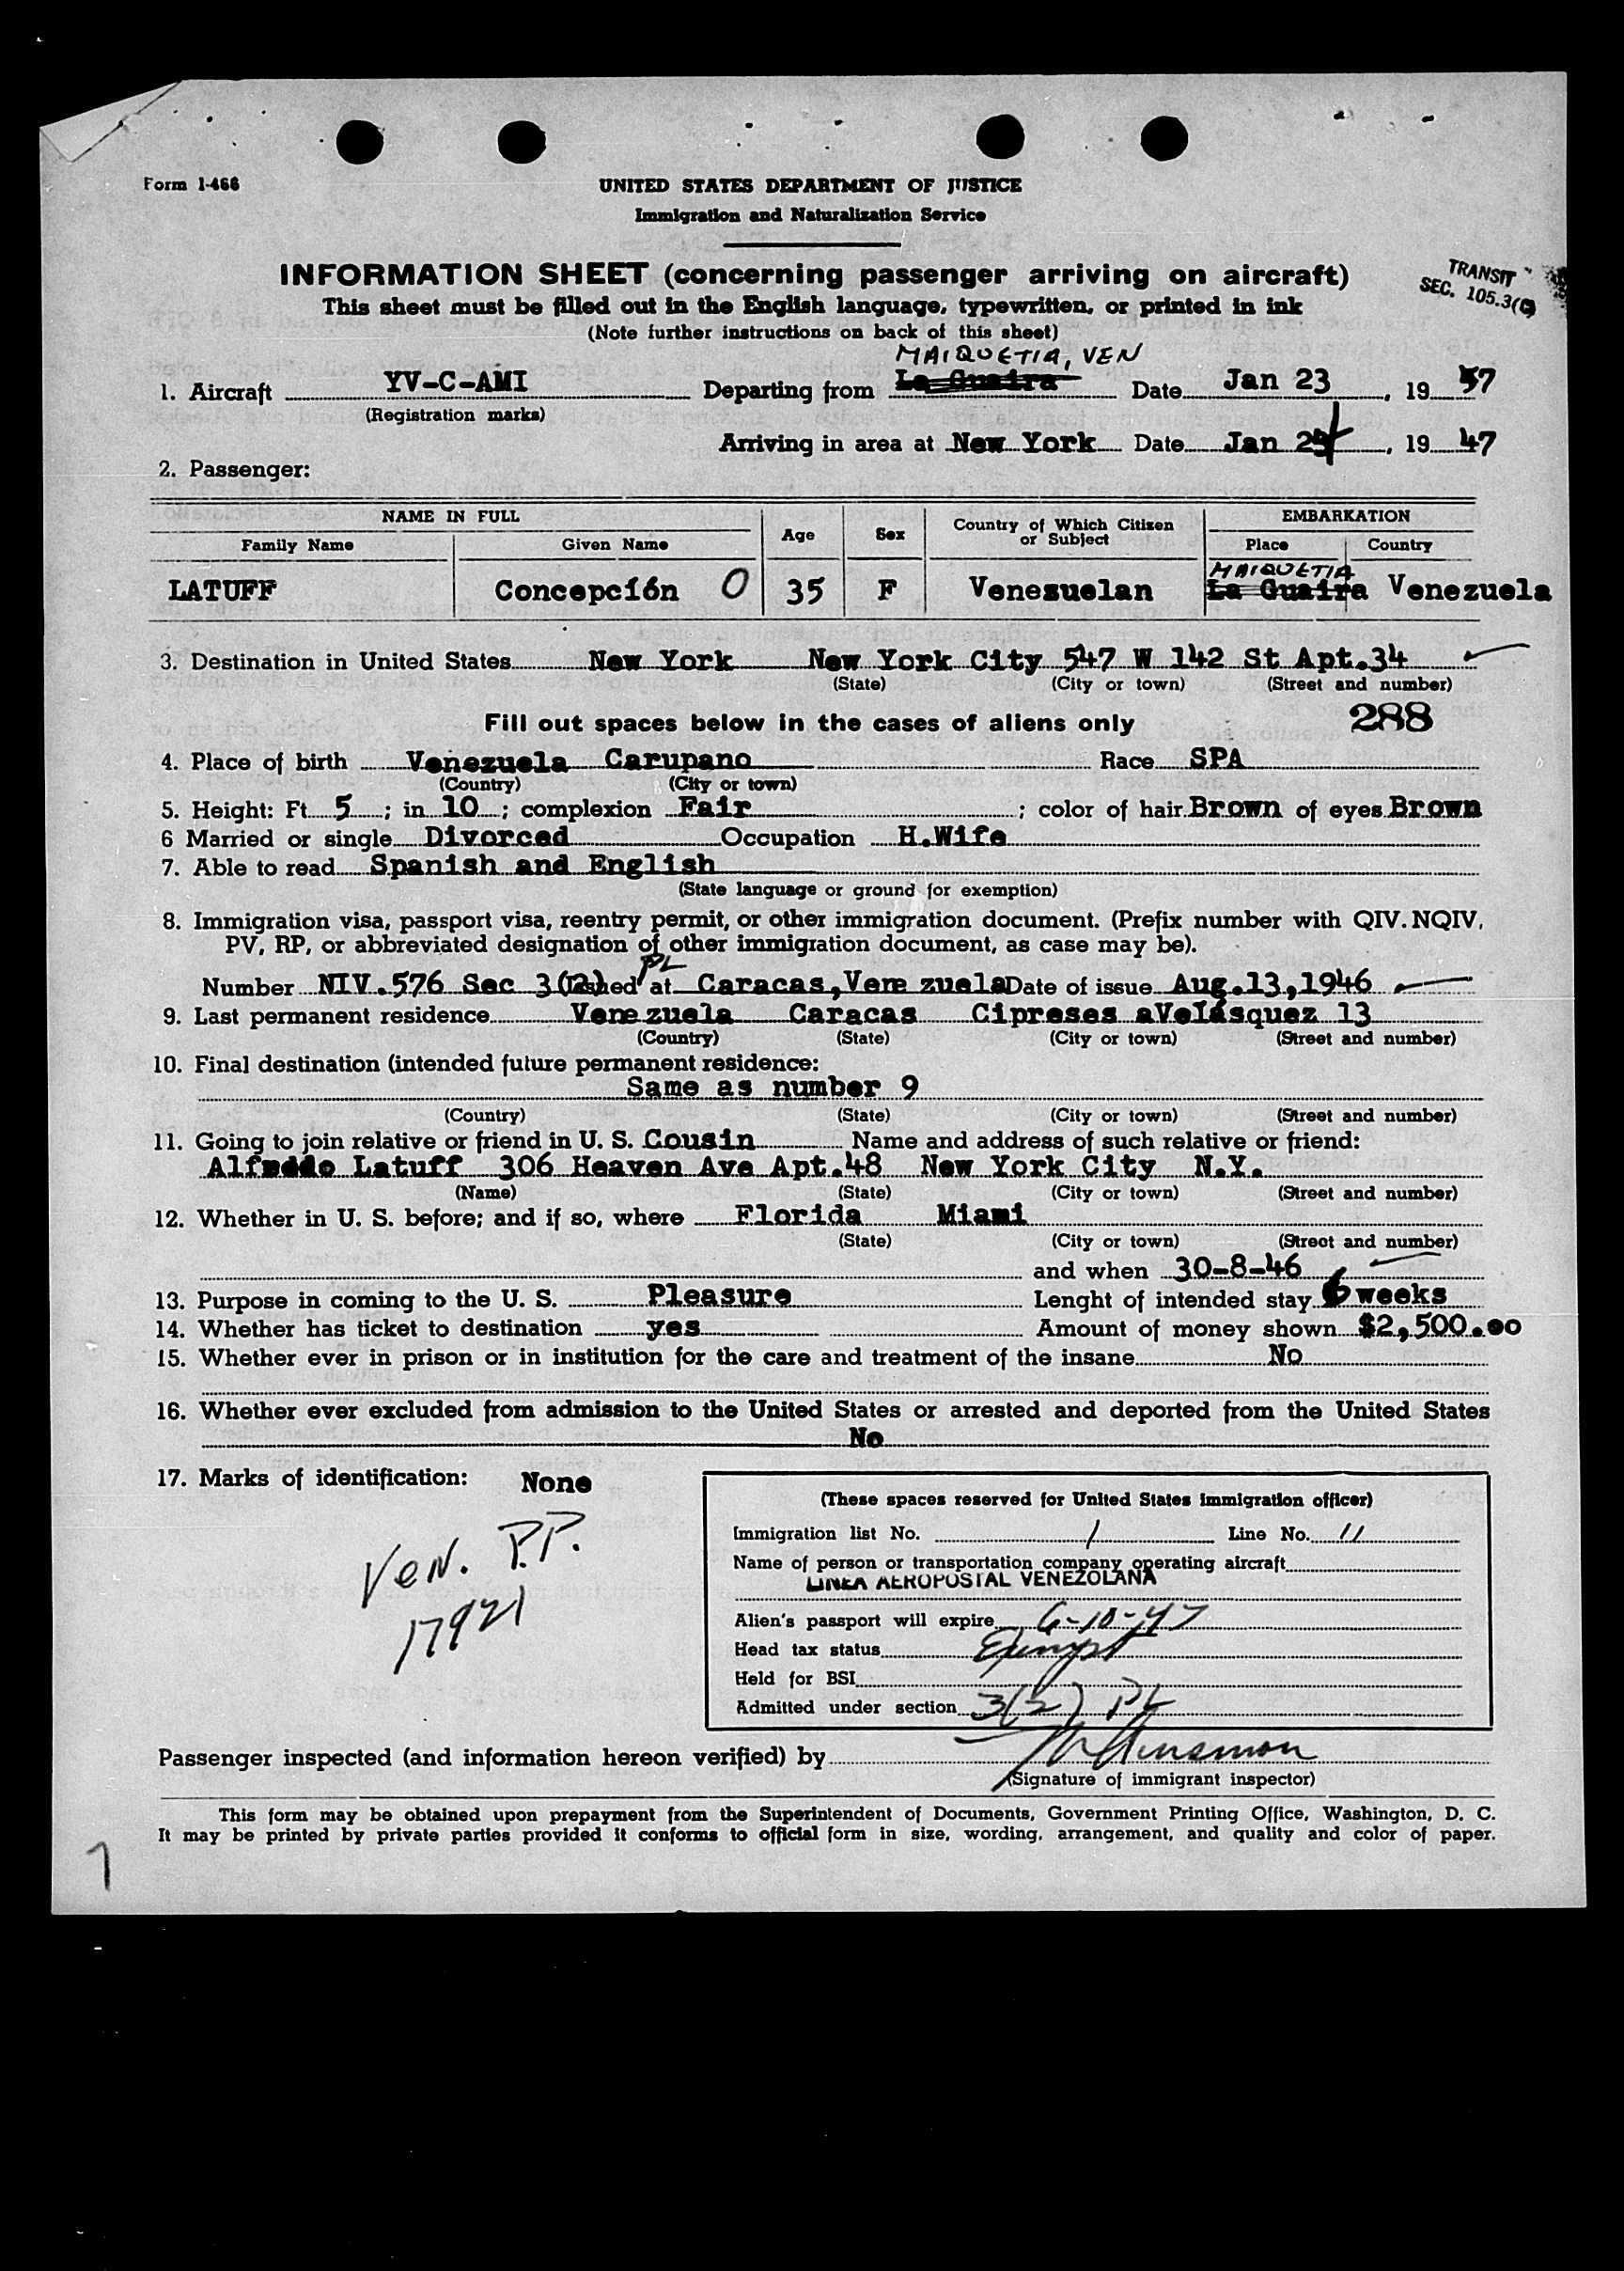 Form 1-466
UNITED STATES DEPARTMENT OF JUSTICE
Immigration and Naturalization Service
INFORMATION SHEET (concerning passenger arriving on aircraft)
TRANSIT
SEC. 105.3(C)
This sheet must be filled out in the English language, typewritten, or printed in ink
(Note further instructions on back of this sheet)
MAIQUETIA, VEN
1. Aircraft YV-C-AMI Departing from La Guaira Date Jan 23, 19 47
(Registration marks)
Arriving in area at New York Date Jan 24, 19 47
2. Passenger:
NAME IN FULL Age Sex Country of Which Citizen or Subject EMBARKATION
Family Name Given Name Place Country
MAIQUETIA
LATUFF Concepción O 35 F Venesuelan La Guaira Venezuela
3. Destination in United States New York New York City 547 W 142 St Apt.34
(State) (City or town) (Street and number)
Fill out spaces below in the cases of aliens only 288
4. Place of birth Venezuela Carupano Race SPA
(Country) (City or town)
5. Height: Ft 5; in 10; complexion Fair; color of hair Brown of eyes Brown
6 Married or single Divorced Occupation H.Wife
7. Able to read Spanish and English
(State language or ground for exemption)
8. Immigration visa, passport visa, reentry permit, or other immigration document. (Prefix number with QIV. NQIV,
PV, RP, or abbreviated designation of other immigration document, as case may be).
PL
Number NIV.576 Sec 3(2) Issued at Caracas, Vene zuela Date of issue Aug.13,1946
9. Last permanent residence Vene zuela Caracas Cipreses aVelásquez 13
(Country) (State) (City or town) (Street and number)
10. Final destination (intended future permanent residence:
Same as number 9
(Country) (State) (City or town) (Street and number)
11. Going to join relative or friend in U. S. Cousin Name and address of such relative or friend:
Alfredo Latuff 306 Heaven Ave Apt.48 New York City N.Y.
(Name) (State) (City or town) (Street and number)
12. Whether in U. S. before; and if so, where Florida Miami
(State) (City or town) (Street and number)
and when 30-8-46
13. Purpose in coming to the U. S. Pleasure Lenght of intended stay 6 weeks
14. Whether has ticket to destination yes Amount of money shown $2,500.00
15. Whether ever in prison or in institution for the care and treatment of the insane No
16. Whether ever excluded from admission to the United States or arrested and deported from the United States
No
17. Marks of identification: None
Ven. P.P.
17921
(These spaces reserved for United States immigration officer)
Immigration list No. 1 Line No. 11
Name of person or transportation company operating aircraft
LINEA AEROPOSTAL VENEZOLANA
Alien's passport will expire 6-10-47
Head tax status Exempt
Held for BSI
Admitted under section 3(2) PL
Passenger inspected (and information hereon verified) by
(Signature of immigrant inspector)
This form may be obtained upon prepayment from the Superintendent of Documents, Government Printing Office, Washington, D. C.
It may be printed by private parties provided it conforms to official form in size, wording, arrangement, and quality and color of paper.
7